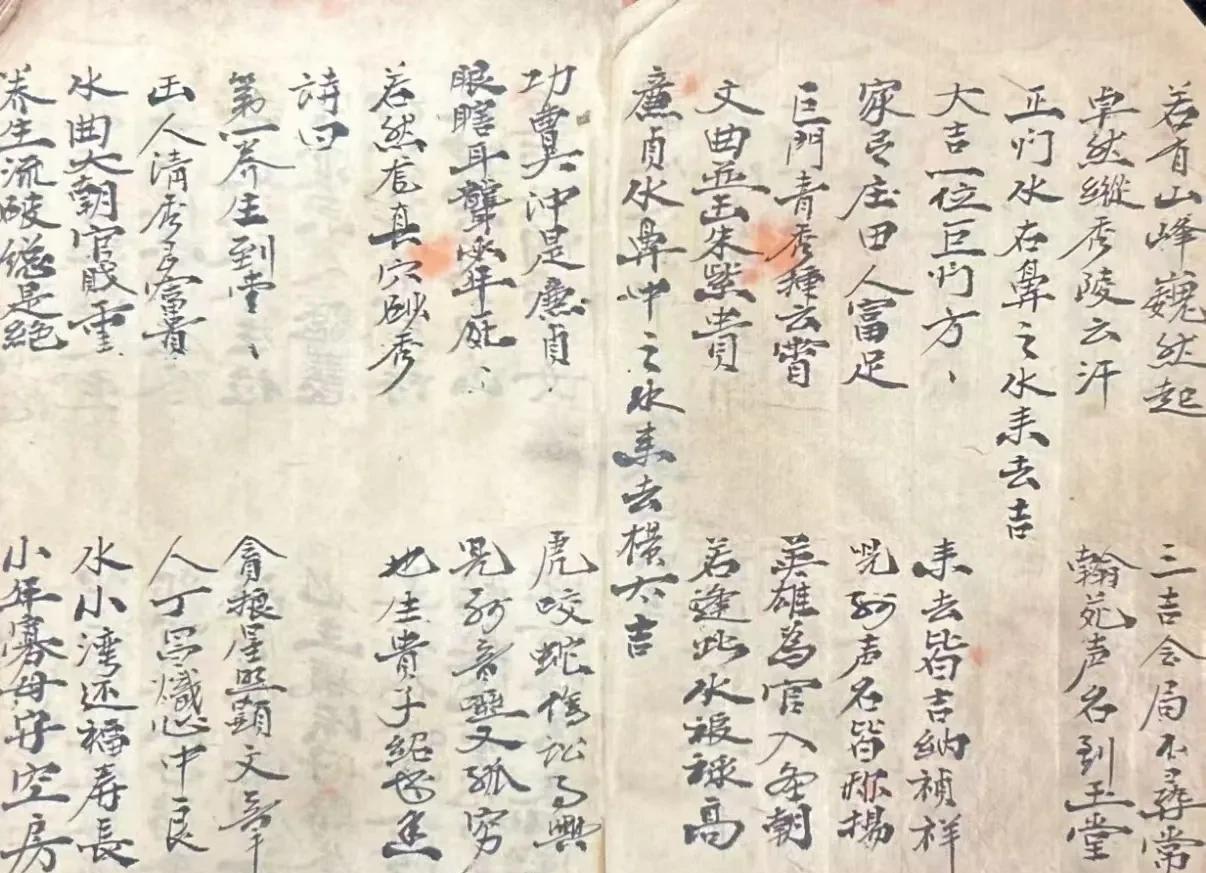 若有山峰巍然起 三吉会局不尋常
卓然縱秀陵云汗 翰苑声名到玉堂
正门水右鼻之水来去吉
大吉一位巨门方、 来去皆吉納禎祥
家有庄田人富足 児孙声名皆称揚
巨門青秀種云霄 英雄為官入圣朝
文曲並出朱紫貴 若逢此水祿高
廉貞水鼻中之水来去横大吉
功曹具冲是廉貞 虎咬蛇伤訟事興
眼瞎耳聾少年死 児孙音哑又孤穷
若然龙真穴砂秀 地生貴子紹
詩曰
第一养生到堂、 貪狼星照顕文章
出人清秀多富貴 人丁昌熾忠中良
水曲大朝官重 水小湾还福寿長
养生流破縂是絶 小年寡母守空房